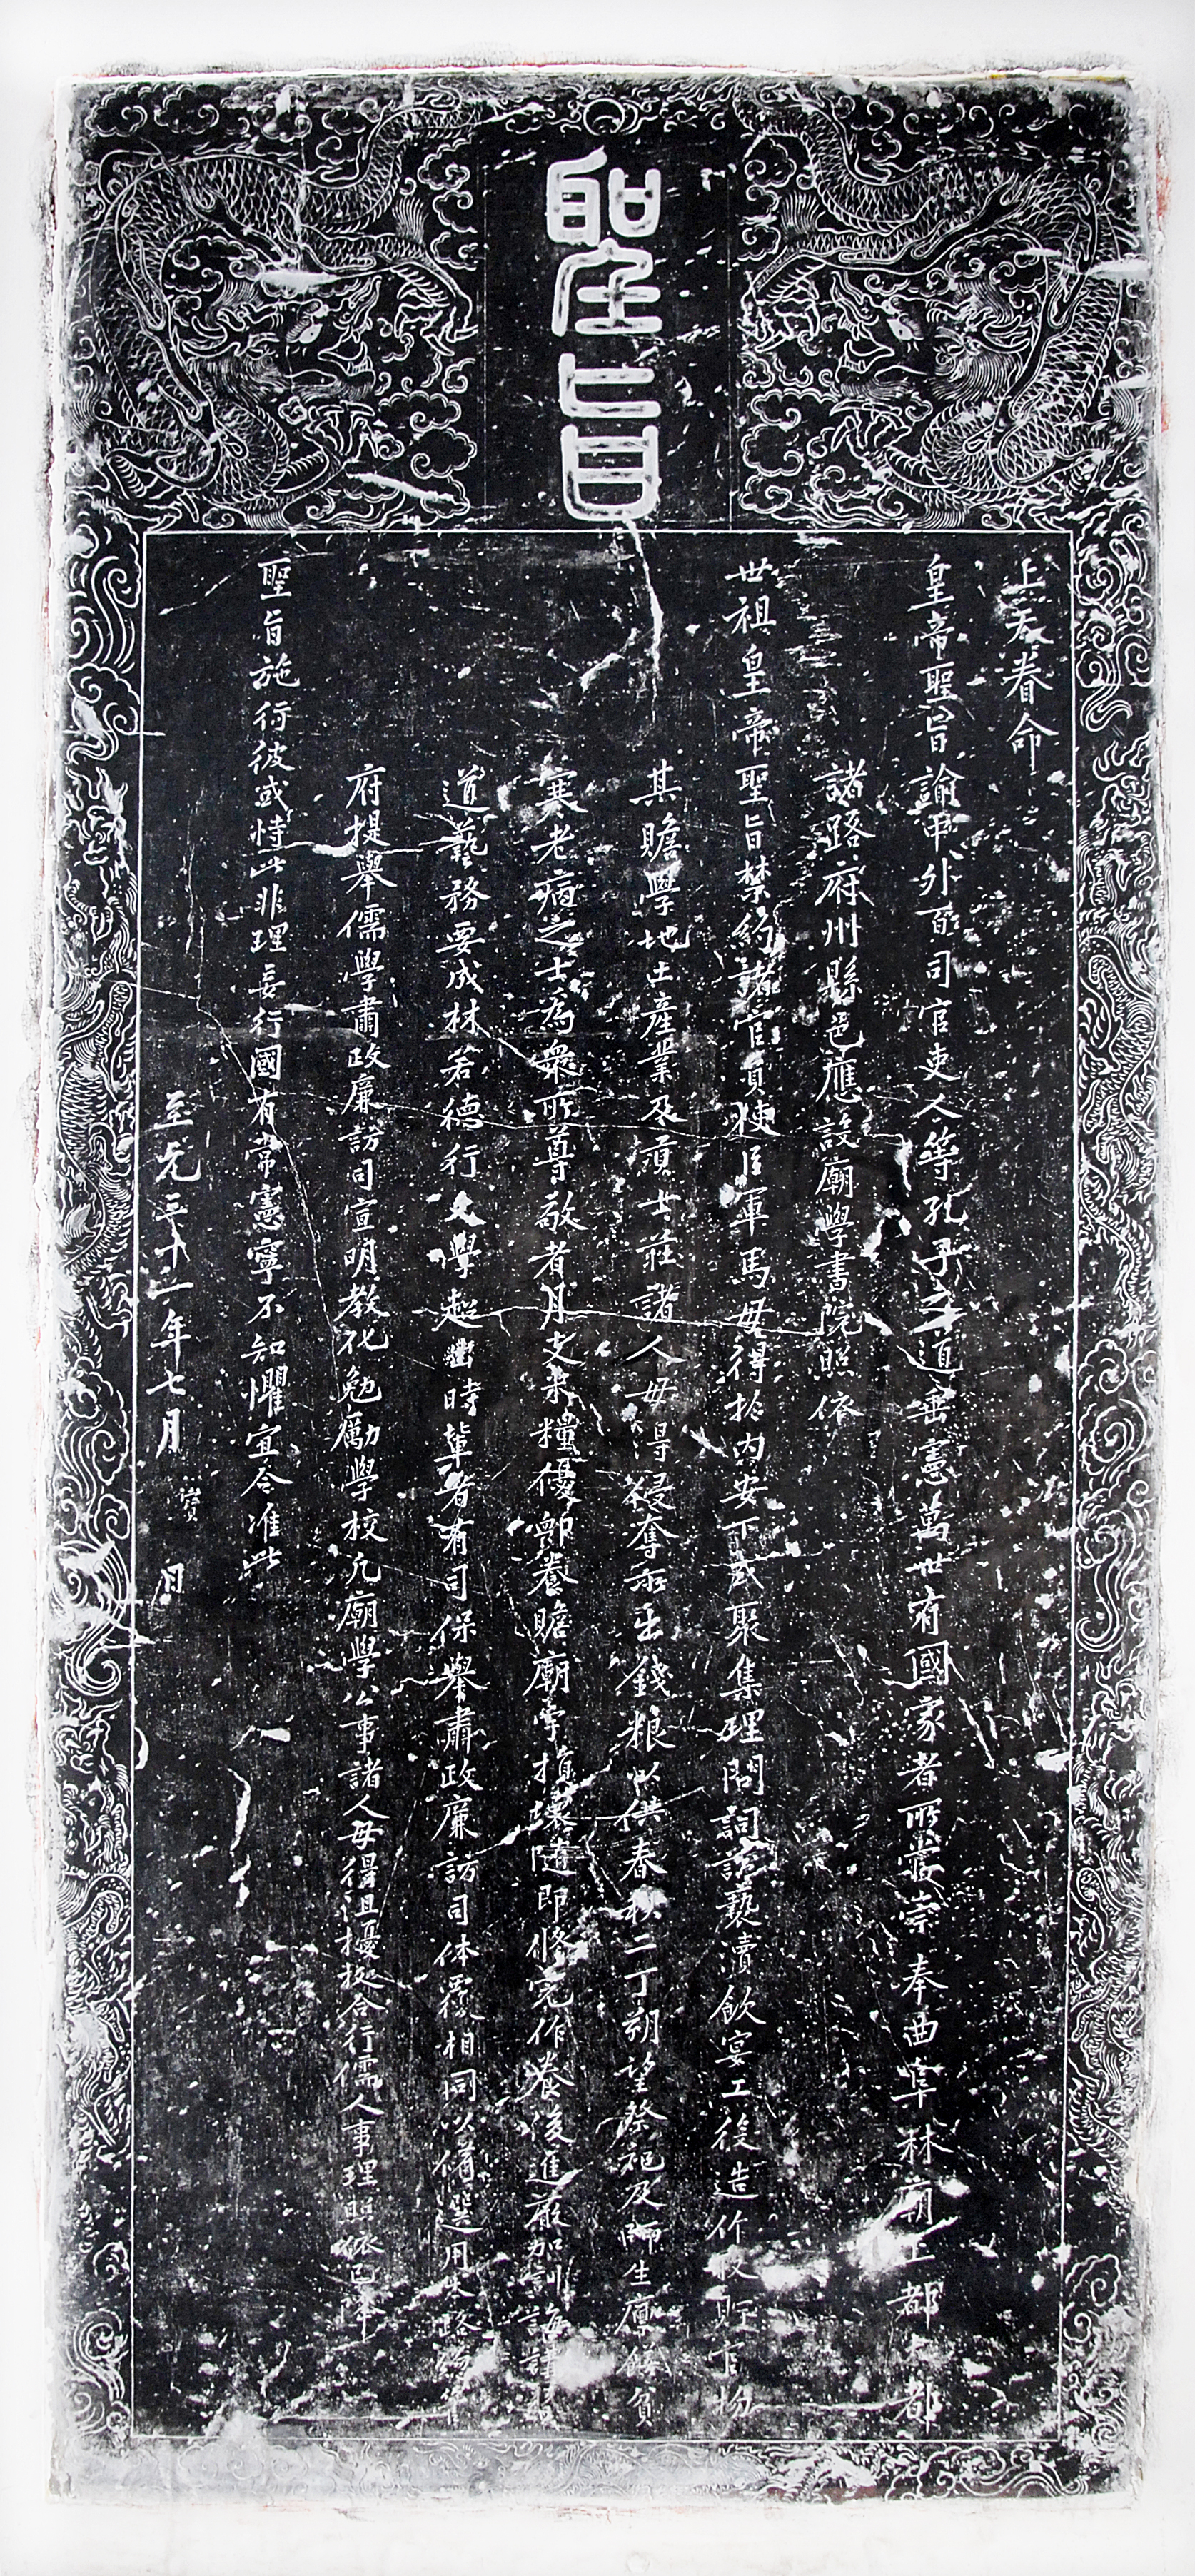 聖旨
上天眷命
皇帝聖旨諭中外百司官吏人等孔子之道垂憲萬世有國家者所當崇奉曲阜林廟上都大都
諸路府州縣邑應設廟學書院照依
世祖皇帝聖旨禁約諸官員使臣軍馬毋得於內安下或聚集理問詞訟褻瀆飲宴工役造作收貯官物
其贍學地土產業及貢士莊諸人毋得侵奪所出錢粮以供春秋二丁朔望祭祀及師生廩餼貧
寒老病之士為衆所尊敬者月支米糧優卹養贍廟宇損壞隨即修完作養後進嚴加訓誨講習
道藝務要成材若德行文學超出時輩者有司保舉肅政廉訪司体覆相同以備選用本路總管
府提舉儒學肅政廉訪司宣明教化勉勵學校凡廟學公事諸人毋得沮擾據合行儒人事理照依已降
聖旨施行彼或恃此非理妄行國有常憲寧不知懼宜令准此
至元三十一年七月 寶 日